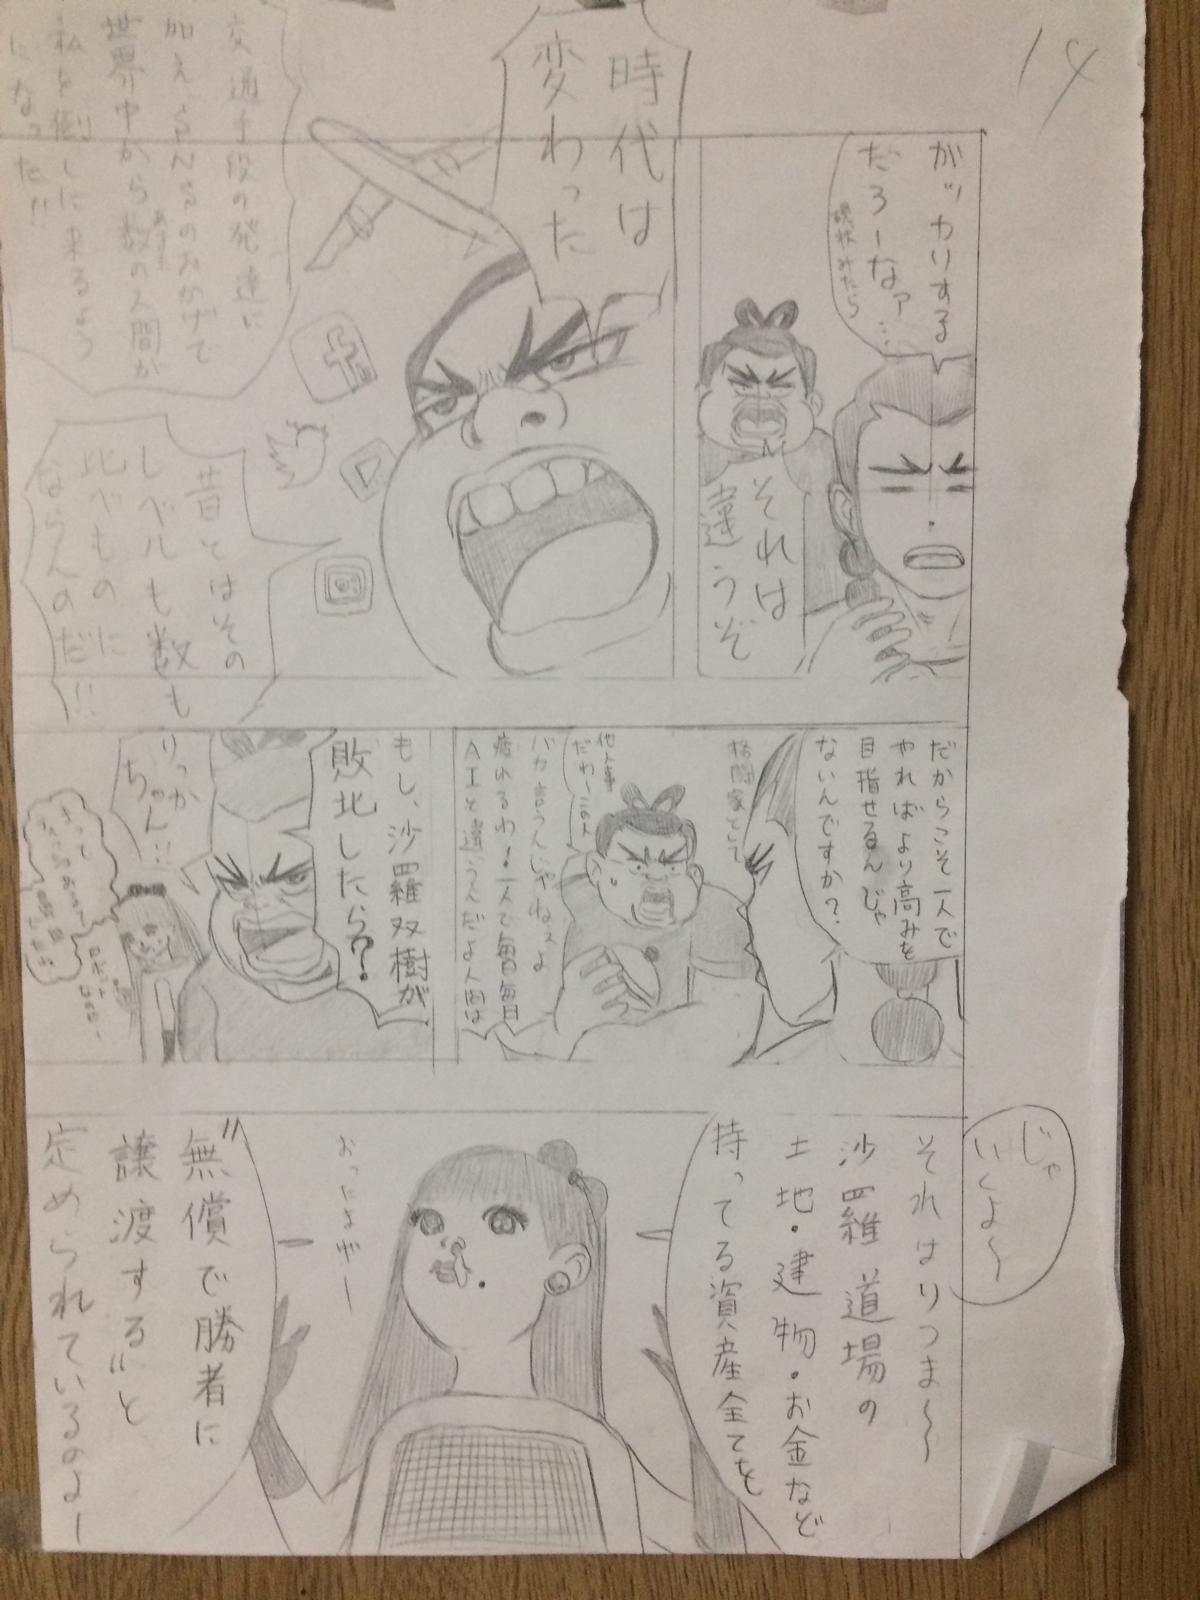 14
ガッカリする
だろーなァ…
現状みたら
それは
違うぞ
時代は
変わった
交通手段の発達に
加えSNSのおかげで
世界中から数の人間が
あまた
私を倒しに来るよう
になった!!
昔とはその
レベルも数も
比べものに
ならんのだ!!
だからこそ一人で
やればより高みを
目指せるんじゃ
ないんですか?
格闘家として
他人事
だわーこの人
バカ言うんじゃねぇよ
疲れるわ!一人で毎日毎日
AIと違うんだよ人間は
もし、沙羅双樹が
敗北したら?
りっか
ちゃん!!
じゃ
いくよ〜
それはりつま〜〜
沙羅道場の
土地・建物・お金など
持ってる資産全てを
おったまげー
"無償で勝者に
譲渡する"と
定められているのよー